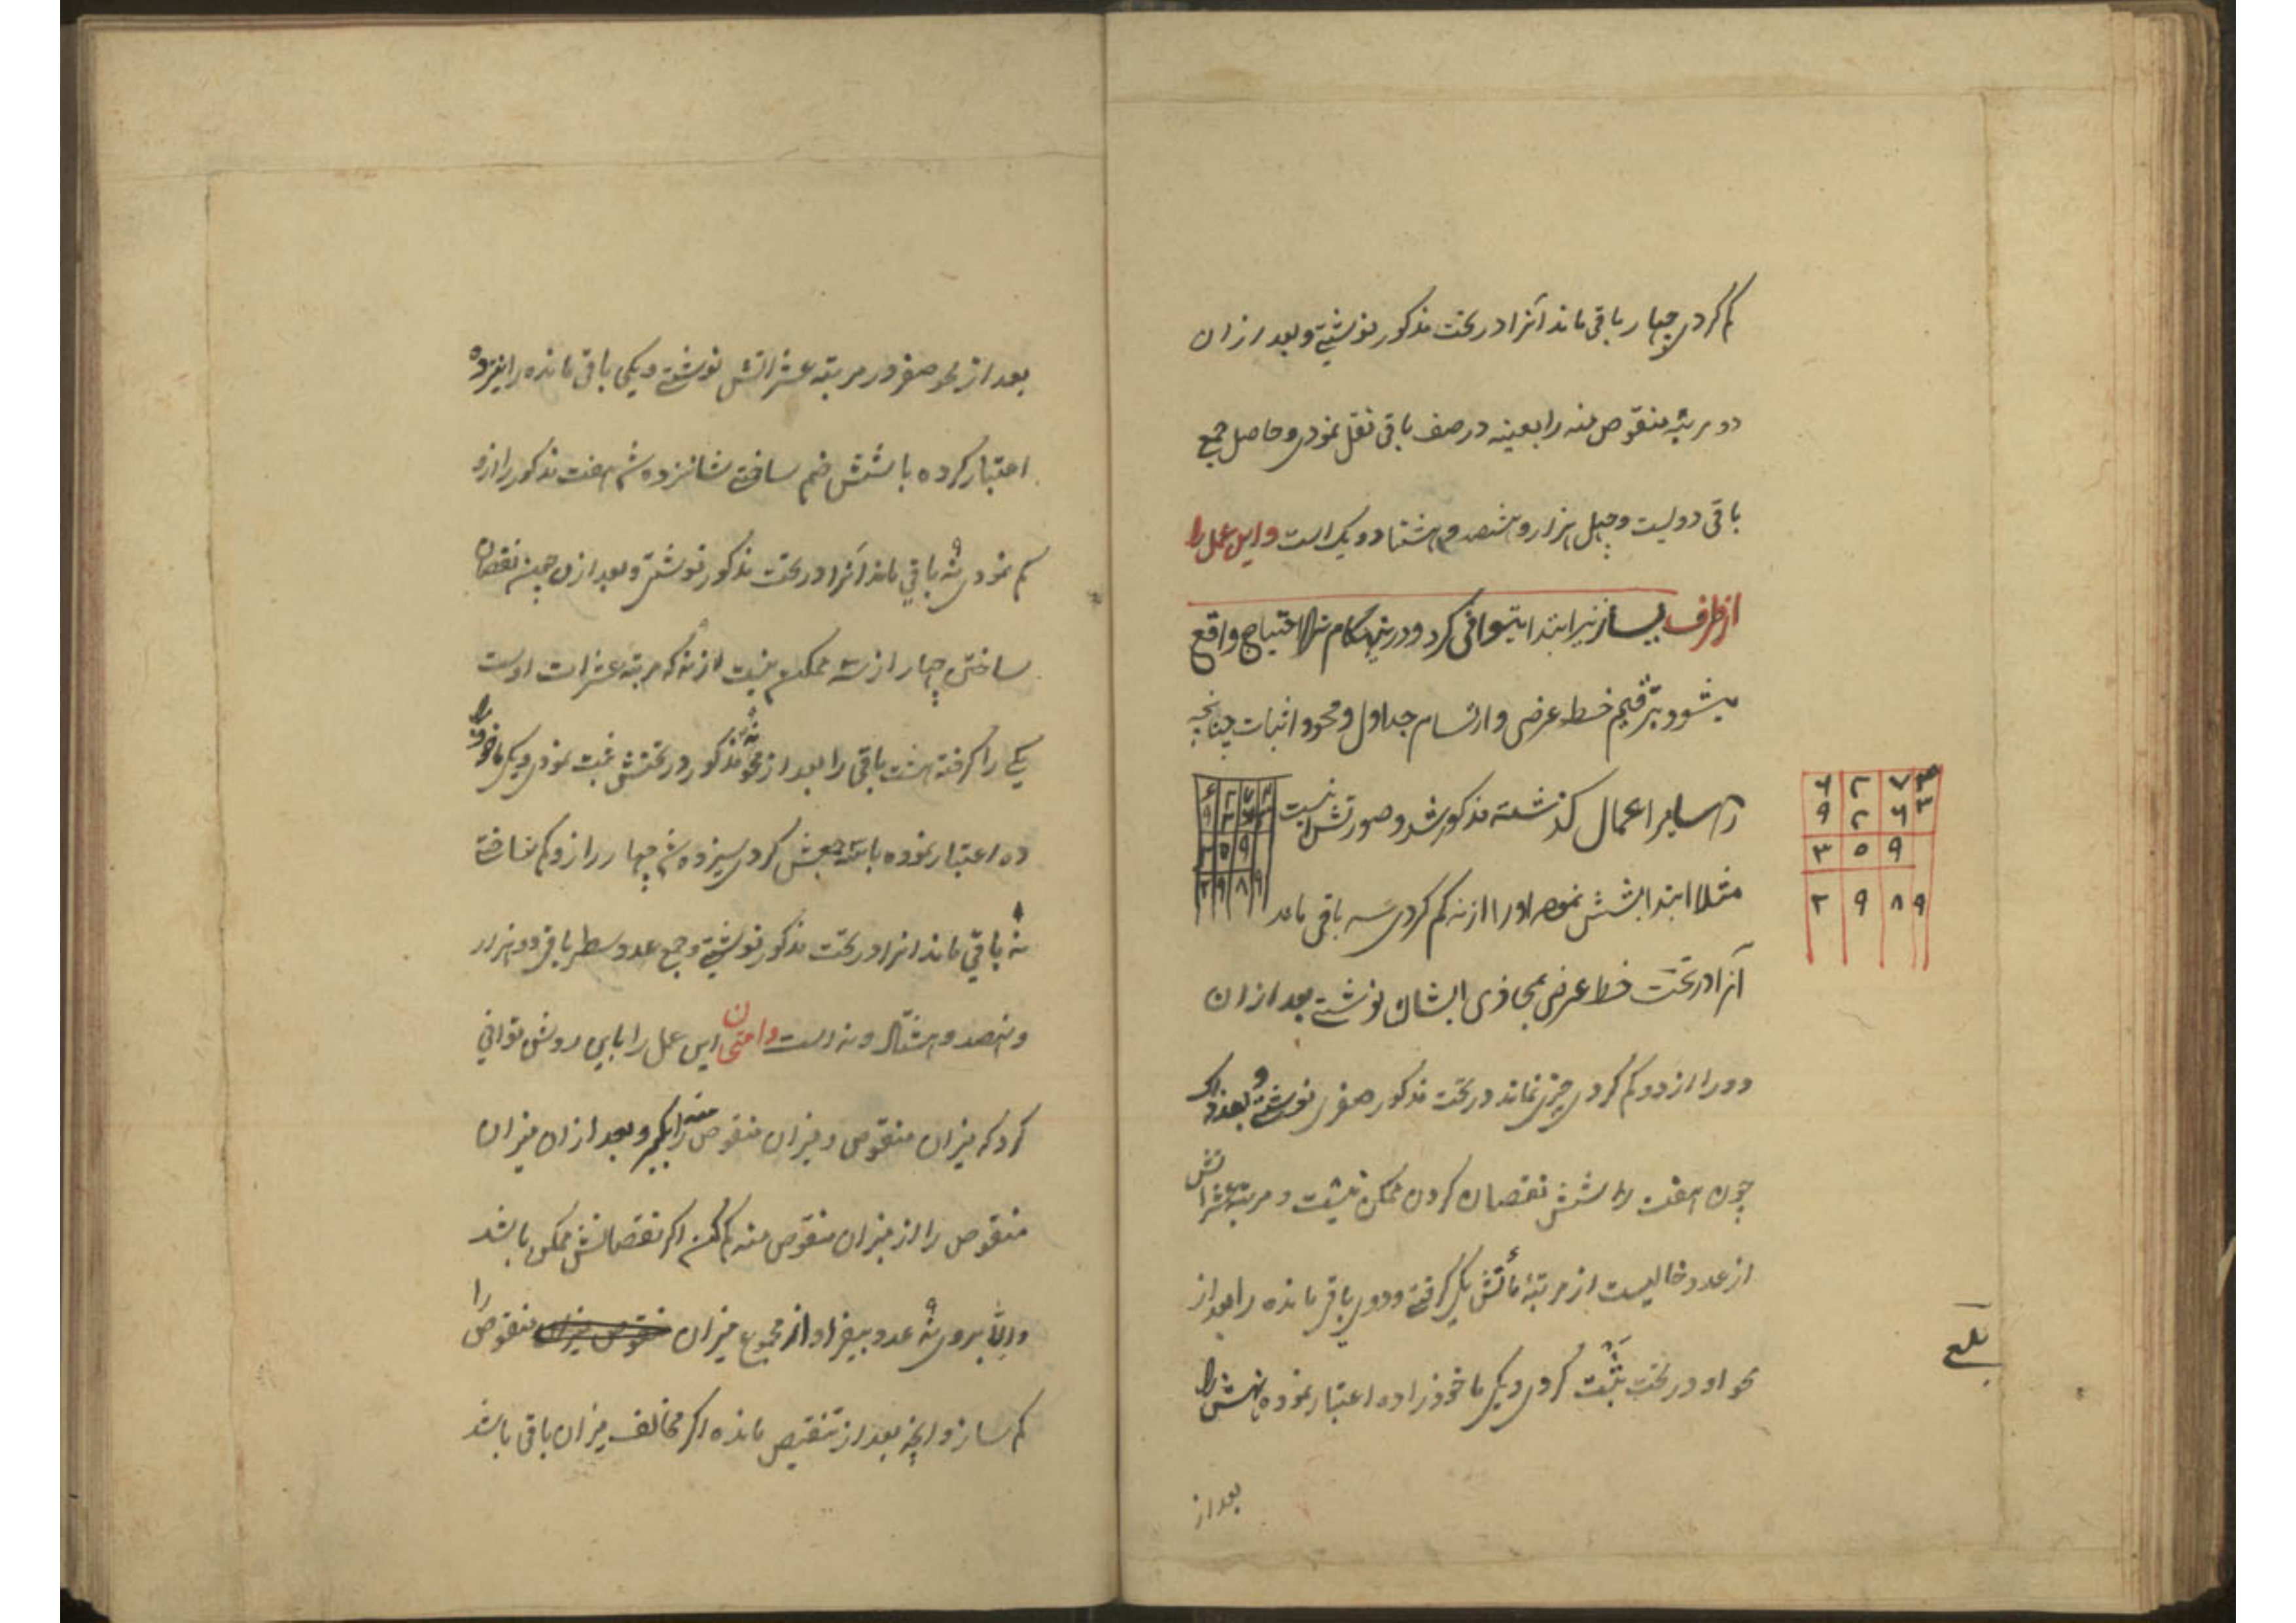 کم کردی چهار باقی ماند آنرا در تحت مذکور نوشتی و بعد از ان
دو مرتبه منقوص منه را بعینه در صف باقی نقل نمودی و حاصل جمع
باقی دولیست و چهل هزار و ششصد و هشتاد و یک است و این عمل را
از طرف یسار نیز ابتدا میتوانی کرد و درین هنگام احتیاج واقع
میشود بترقیم خط عرضی و ارتسام جداول و محو و اثبات چنانچه
در سایر اعمال گذشته مذکور شد و صورتش اینست
۶ ۲ ۷ ۳
۹ ۲ ۶ ۳
۳ ۰ ۹
۲ ۹ ۸ ۹
مثلا ابتدا بشش نموده او را از نه کم کردی سه باقی ماند
آنرا در تحت خط عرضی بمحاذی ایشان نوشتی بعد از ان
دو را از دو کم کردی چیزی نماند در تحت مذکور صفری نوشتی و بعد از ان
چون هفت را از شش نقصان کردن ممکن نیست و مرتبه عشراتش
از عدد خالیست از مرتبهٔ مأتش یکی گرفتی و دوی باقی مانده را بعد از
محو او در تحت ثبت کردی و یکی ماخوذ را ده اعتبار نموده نهش را
بعد از
بلغ
بعد از محو صفر در مرتبه عشراتش نوشتی و یکی باقی مانده را نیز ده
اعتبار کرده با شش ضم ساختی شانزده شد هفت مذکور را ازو
کم نمودی نه باقی ماند آنرا در تحت مذکور نوشتی و بعد ازان چون نقصان
ساختن چهار از سه ممکن نیست از نه که مرتبه عشرات اوست
یکی را گرفته هشت باقی را بعد از محو نه مذکور در تحتش ثبت نمودی و یکی ماخوذ را
ده اعتبار نموده با سه جمعش کردی سیزده شد چهار را ازو کم ساختی
نه باقی ماند انرا در تحت مذکور نوشتی و جمع عدد سطر باقی دو هزار
و نهصد و هشتاد و نه است و امتحان این عمل را باین روش توانی
کرد که میزان منقوص و میزان منقوص منه را بگیر و بعد ازان میزان
منقوص را از میزان منقوص منه کم کن اگر نقصانش ممکن باشد
والا بروی نه عدد بیفزا و از مجموع میزان منقوص را
کم ساز و آنچه بعد از تنقیص مانده اگر مخالف میزان باقی باشد